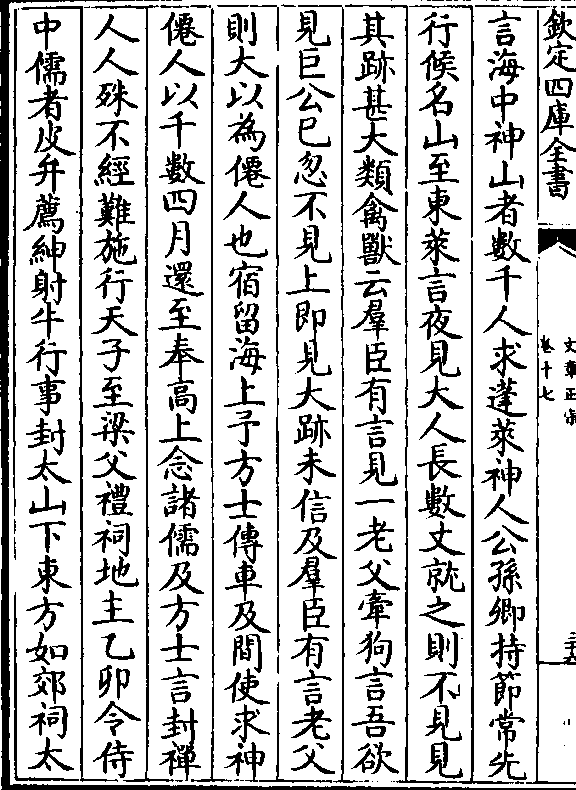 欽定四庫全書
文章正宗
卷十七
言海中神山者數千人求蓬萊神人公孫卿持節常先
行候名山至東萊言夜見大人長數丈就之則不見見
其跡甚大類禽獸云羣臣有言見一老父牽狗言吾欲
見巨公已忽不見上即見大跡未信及羣臣有言老父
則大以為僊人也宿留海上予方士傳車及間使求神
僊人以千數四月還至奉高上念諸儒及方士言封禪
人人殊不經難施行天子至梁父禮祠地主乙卯令侍
中儒者皮弁薦紳射牛行事封太山下東方如郊祠太